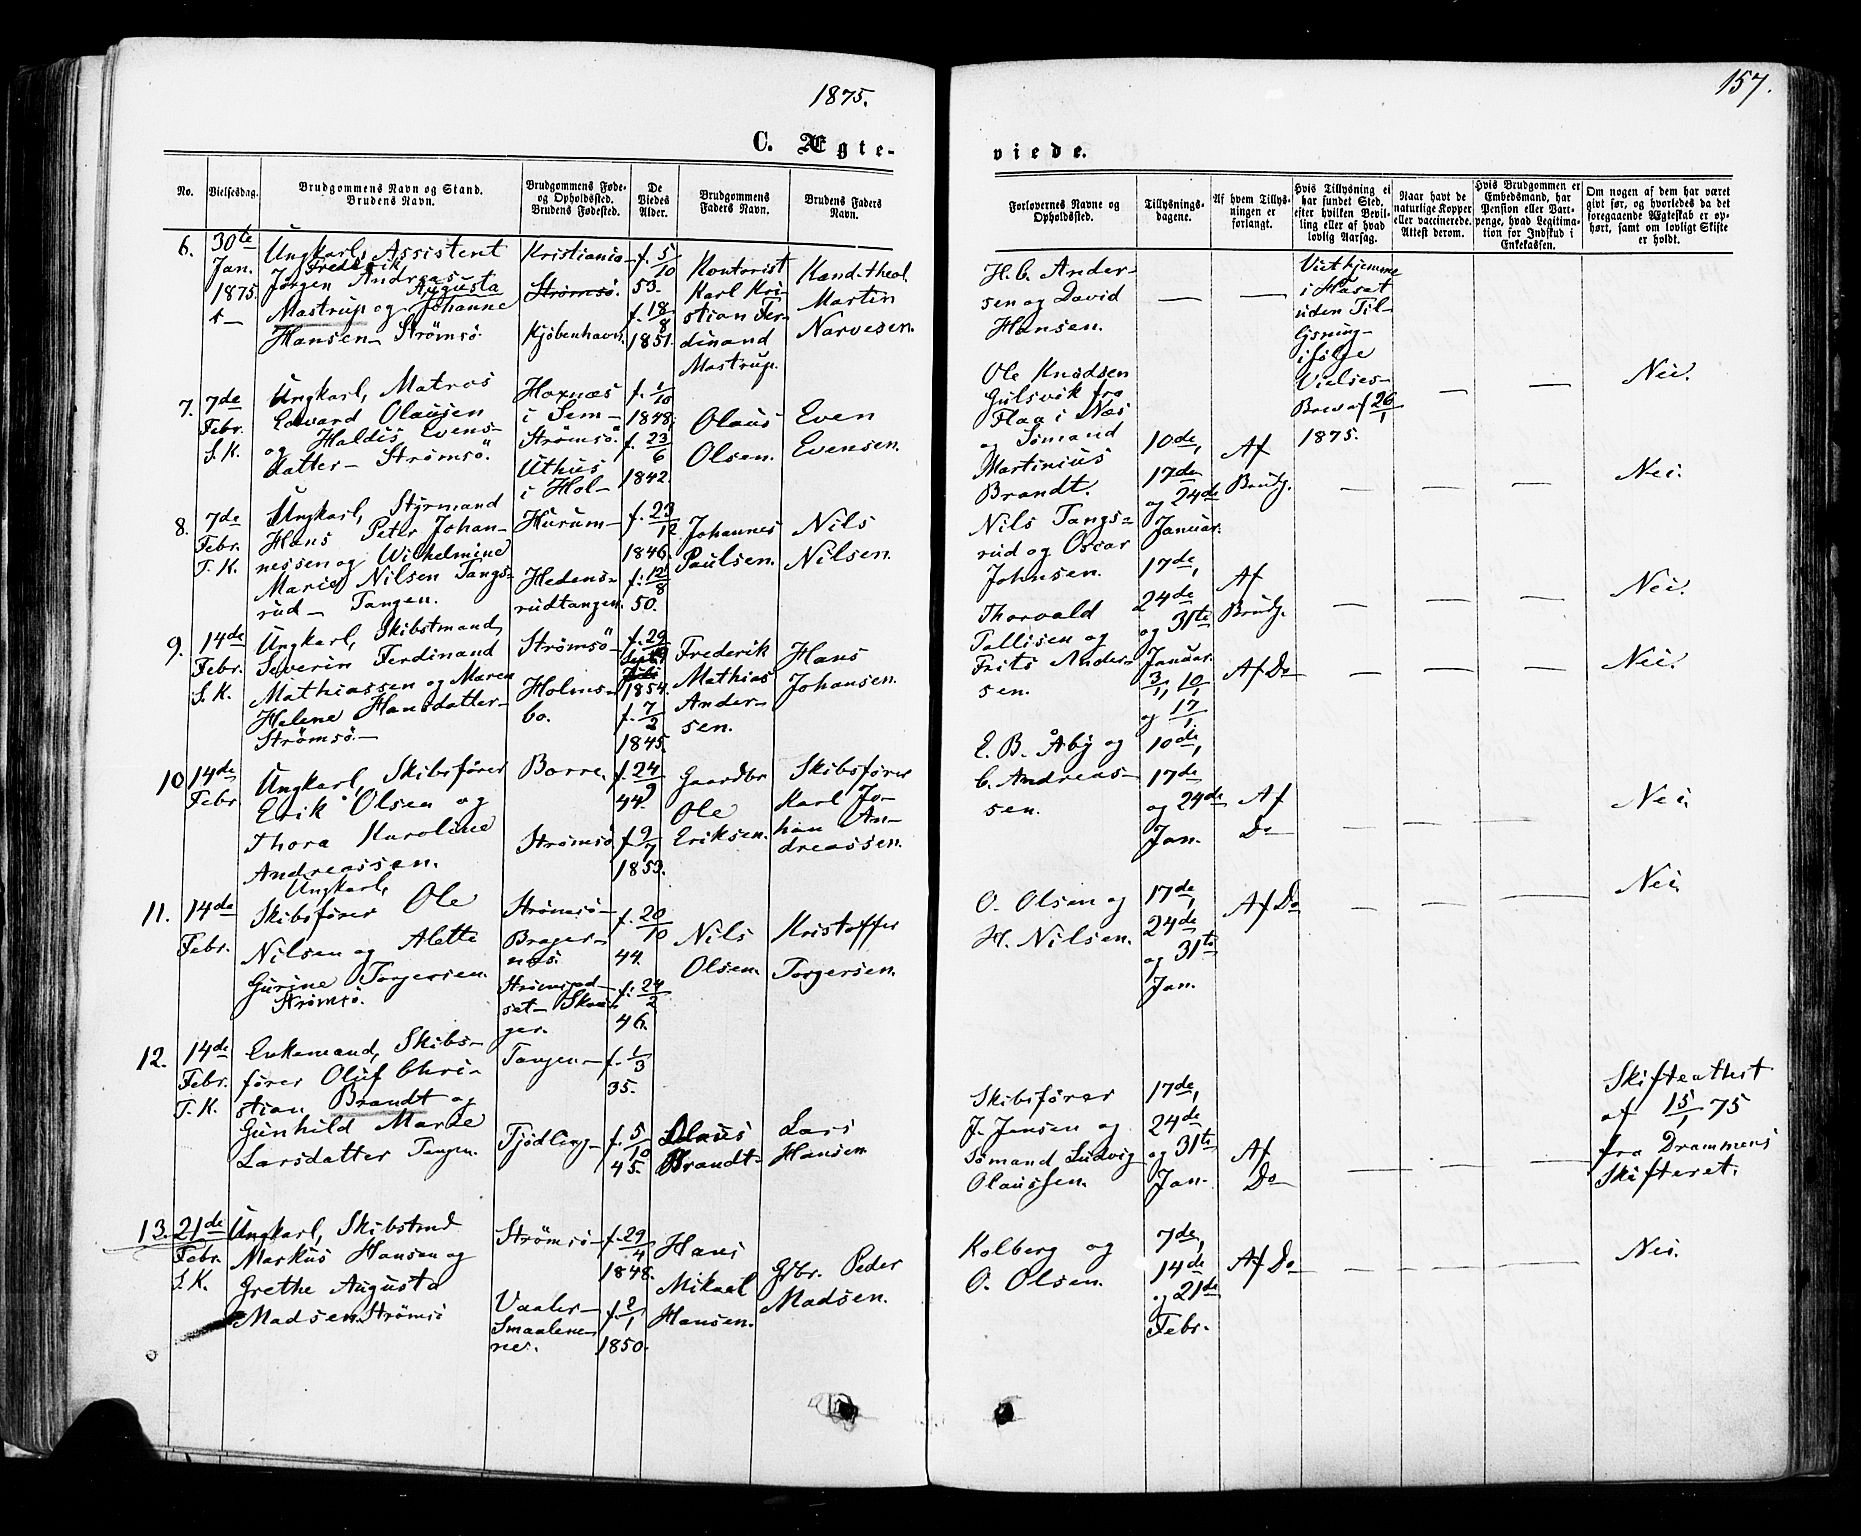 1875.
157.
C. Ægte-
viede.
No.
Vielsesdag.
Brudgommens Navn og Stand.
Brudens Navn.
Brudgommens Føde-
og Opholdssted.
Brudens Fødested.
De
Viedes
Alder.
Brudgommens
Faders Navn.
Brudens Faders
Navn.
Forlovernes Navne og
Opholdssted.
Tillysnings-
dagene.
Af hvem Tillys-
ningen er
forlangt.
Hvis Tillysning ei
har fundet Sted,
efter hvilken Bevil-
ling eller af hvad
lovlig Aarsag.
Naar havt de
naturlige Kopper
eller vaccinerede.
Attest derom.
Hvis Brudgommen er
Embedsmand, har
Pension eller Vart-
penge, hvad Legitima-
tion for Indskud i
Enkekassen.
Om nogen af dem har været
givt før, og hvorledes da det
foregaaende Ægteskab er op-
hørt, samt om lovligt Skifte
er holdt.
6.
30te
Jan.
1875.
Ungkarl, Assistent
Fredrik
Jørgen Andreas
Augusta
Mastrup og Johanne
Hansen - Strømsö
Kristiania-
Strømsö.
Kjöbenhavn.
f. 5/10
53.
f. 18/8
1851.
Kontorist
Karl Kri-
stian Fer-
dinand
Mastrup.
Kand. theol.
Martin
Narvesen.
H. C. Ander-
sen og David
Hansen.
— —
Viet hjemme
i Huset
uden Til-
lysning-
ifölge
Vielses-
Brev af 26/1
1875.
— —
Nei.
7.
7de
Febr.
S. K.
Ungkarl, Matros
Edvard Olausen
og Haldis Evens-
datter - Strømsö.
Hoxnæs
i Sem -
Strømsö
Uthus
i Hol-
f. 1/10
1848.
f. 23/6
1842.
Olaus
Olsen.
Even
Evensen.
Ole Knudsen
Gulsvik fra
Flaa i Næs
og Sømand
Martinius
Brandt.
10de,
17de
og 24de
Januar.
Af
Brudg.
— — —
Nei.
8.
7de
Febr.
T. K.
Ungkarl, Styrmand
Hans Peter Johan-
nessen og Wilhelmine
Marie Nilsen Tangs-
rud - Tangen.
Hurum -
Hedens-
rudtangen.
f. 23/12
1846.
f. 12/8
50.
Johannes
Paulsen.
Nils
Nilsen.
Nils Tangs-
rud og Oscar
Johnsen.
17de,
24de
og 31te
Januar.
Af
Brudg.
— — —
Nei.
9.
14de
Febr.
S. K.
Ungkarl, Skibstmand,
Severin Ferdinand
Mathiassen og Maren
Helene Hansdatter -
Strømsö. -
Strømsö
Holms-
bo.
f. 29
Sept.
1854.
f. 7/2
1845.
Frederik
Mathias
Ander-
sen.
Hans
Johansen.
Thorvald
Tallisen og
Frits Ander-
sen.
3/1, 10/1
og 17/1.
Af Do
— — —
Nei.
10
14de
Febr.
Ungkarl, Skibsförer
Erik Olsen og
Thora Karoline
Andreassen.
Borre.
Strømsö
f. 24/9
44.
f. 9/7
1853.
Gaardbr.
Ole
Eriksen.
Skibsförer
Karl Jo-
han An-
dreassen.
E. B. Åby og
C. Andreas-
sen.
10de,
17de
og 24de
Jan.
Af
Do
— — —
Nei.
11.
14de
Febr.
Ungkarl,
Skibsförer Ole
Nilsen og Alette
Gurine Torgersen.
Strømsö.
Strømsö -
Brager-
næs.
Strømsgod-
set - Skou-
ger.
f. 20/10
44.
f. 24/2
46.
Nils
Olsen.
Kristoffer
Torgersen.
O. Olsen og
H. Nilsen.
17de,
24de
og 31te
Jan.
Af Do
— — —
Nei.
12.
14de
Febr.
T. K.
Enkemand, Skibs-
förer Oluf Chri-
stian Brandt og
Gunhild Marie
Larsdatter Tangen.
Tangen -
Tjødling -
f. 1/3
35.
f. 5/10
45.
Olaus
Brandt -
Lars
Hansen
Skibsförer
J. Jensen og
Sømand Ludvig
Olaussen.
17de,
24de
og 31te
Jan.
Af
Do
— — —
Skifteattest
af 15/1 75
fra Drammens
Skifteret.
13.
21de
Febr.
S. K.
Ungkarl, Skibstmd
Markus Hansen og
Grethe Augusta
Madsen. Strømsö
Strømsö -
Vaaler -
Smaalene-
nes.
f. 29/4
1848.
f. 2/1
1850.
Hans
Mikael
Hansen.
Gbr. Peder
Madsen.
Kolberg og
O. Olsen.
7de,
14de
og 21de
Febr.
Af Do
— — —
Nei.